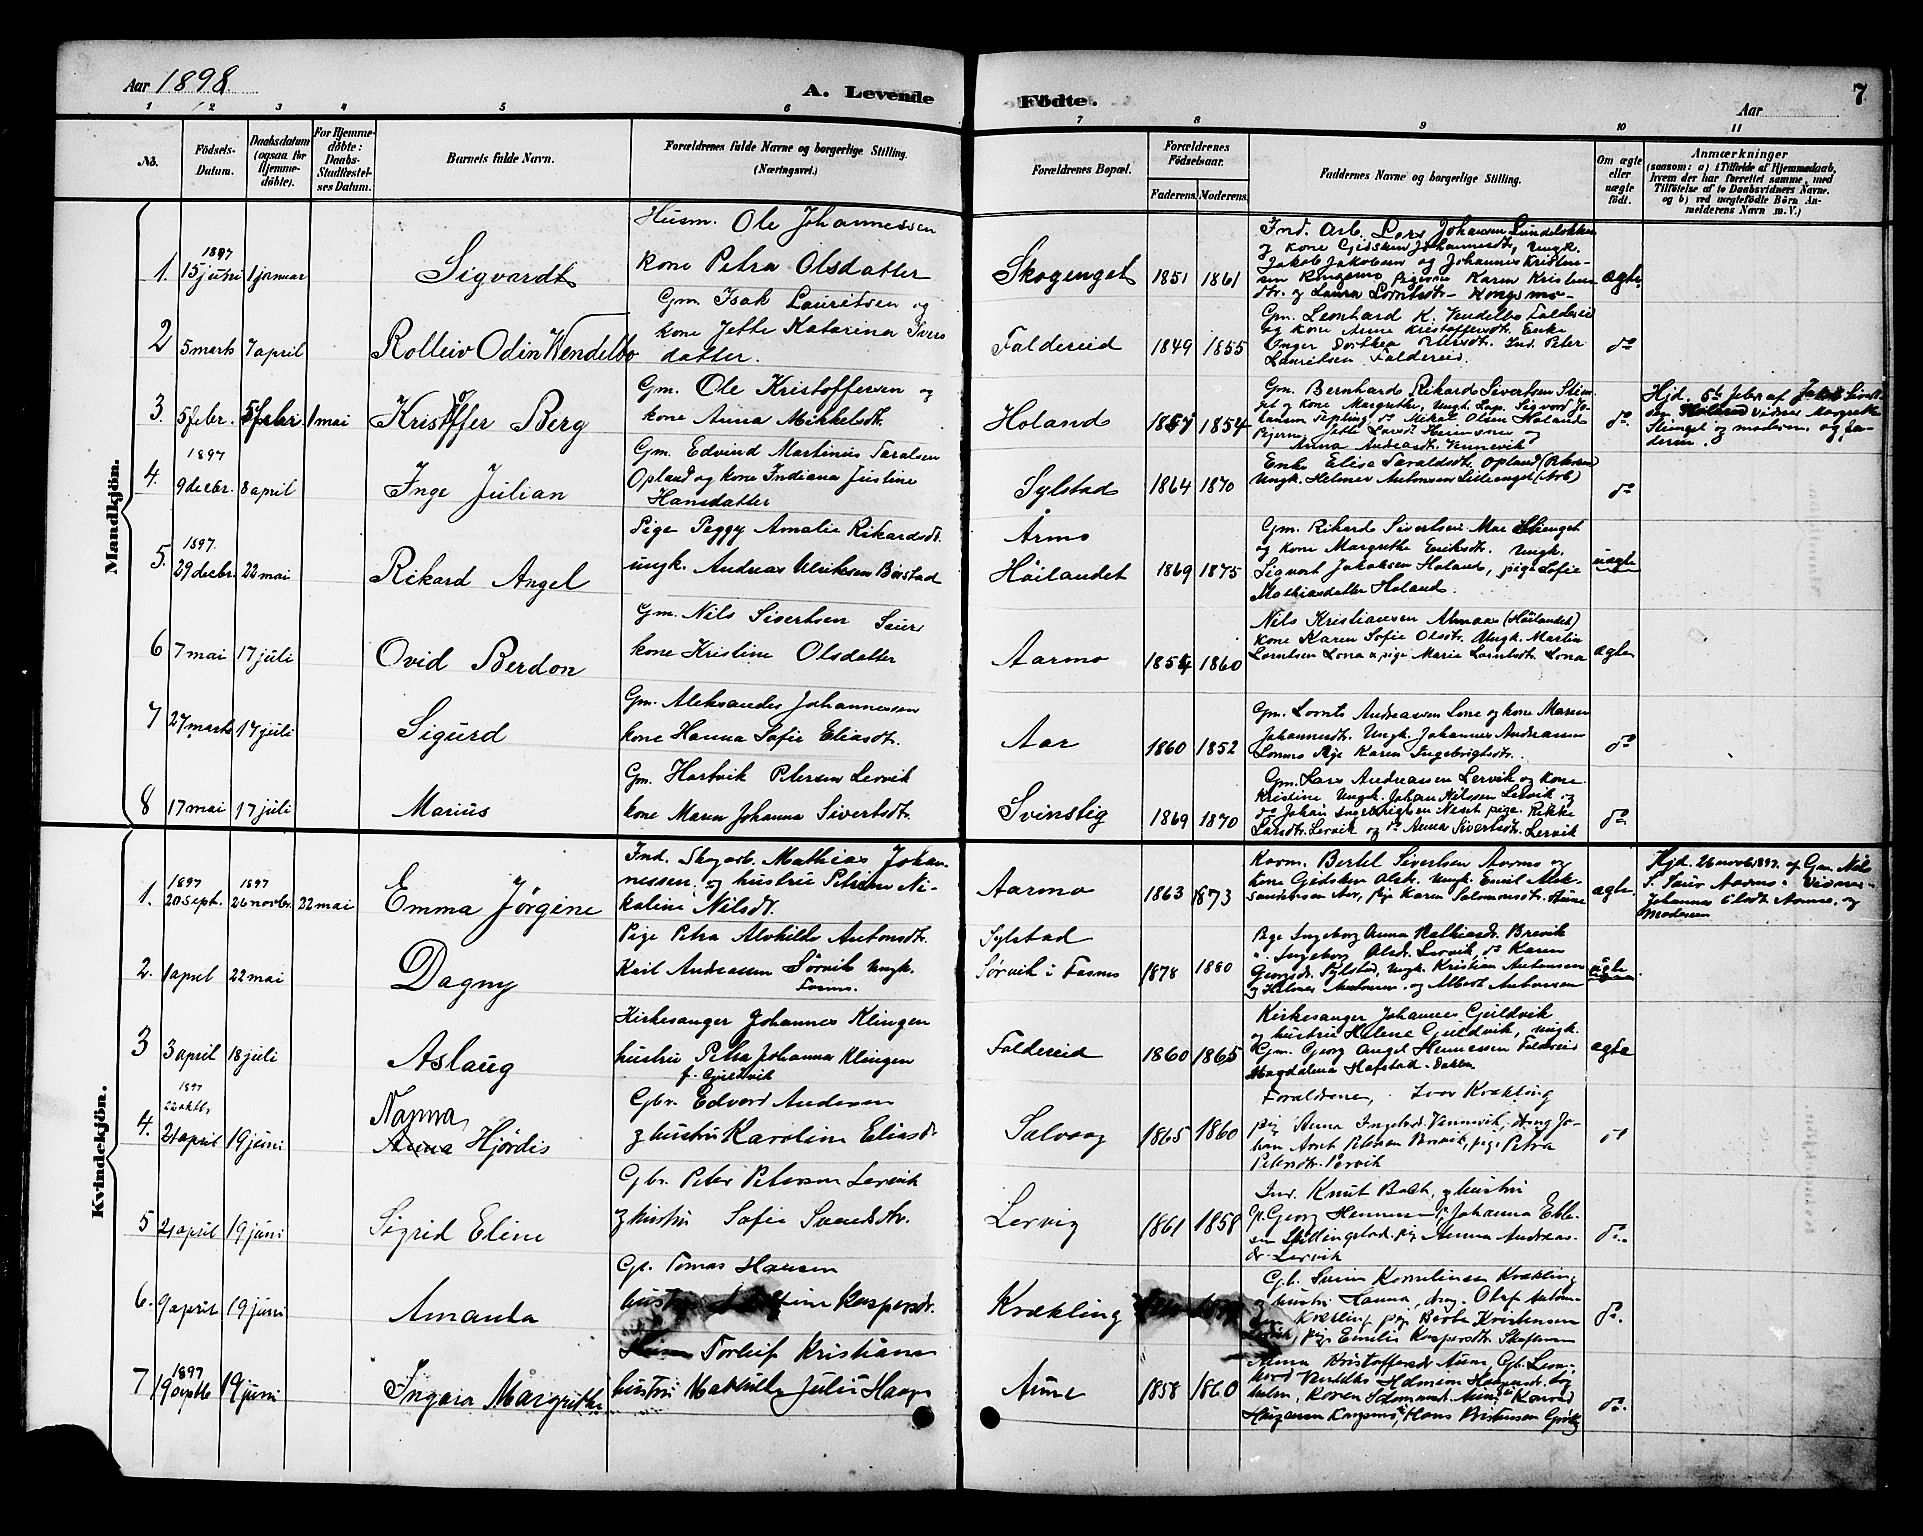 Aar 1898.
A. Levende
Fødte.
Aar
7
1 2 3 4 5 6 7 8 9 10 11
No.
Fødsels-
Datum.
Daabsdatum
(ogsaa for
Hjemme-
døbte).
For Hjemme-
døbte:
Daabs-
Stadfæstel-
ses Datum.
Barnets fulde Navn.
Forældrenes fulde Navne og borgerlige Stilling.
(Næringsvei.)
Forældrenes Bopæl.
Forældrenes
Fødselsaar.
Faderens. Moderens.
Faddernes Navne og borgerlige Stilling.
Om ægte
eller
uægte
født.
Anmærkninger
(saasom: a) i Tilfælde af Hjemmedaab,
hvem der har forrettet samme, med
Tilføielse af to Daabsvidners Navne.
og b) ved uægtefødte Børn An-
melderens Navn m. V.)
Mandkjøn.
1. 1897 15 juni 1 januar
Sigvardt
Husm. Ole Johannessen
kone Petra Olsdatter
Skogenget 1851 1861
Ind. Arb. Lars Johansen Lundelokken
og kone Gidsken Johannesdt, Ungk.
Jakob Jakobsen og Johannes Kristen-
sen Kongsmo pigerne Karen Kristens
dtr. og Laura Lorntsdt. Kongsmo
ægte
2 5 marts 7 april
Rolleiv Odin Wendelbo
Gm. Isak Lauritsen og
kone Jette Katarina Ivers
datter.
Foldereid 1849 1855
Gm. Leonhard K. Vendelbo Foldereid
og kone Anne Kristoffersdt. Enke
Inger Dorthea Petersdt. Ind. Peter
Lauritsen Foldereid.
do
3. 5 febr. 5 febr 1 mai
Kristoffer Berg
Gm. Ole Kristoffersen og
kone Anna Mikkelsdt.
Holand 1857 1854
Gm. Bernhard Rikard Sivertsen Stien-
get og kone Margrethe, Ungk. Lap. Sigvard Jo-
Mikal Olsen Holand
Anna Andreasdt. Vennevik
do.
Hjd. 5te febr. af Jakob Sivert
sen Holand vidner Margrethe
Stienget og moderen og fa-
deren.
4. 1897 9 decbr. 8 april
Inge Julian
Gm. Edvind Martinus Taralsen
Opland og kone Indiana Justine
Hansdatter
Sylstad 1864 1870
Enke Elisa Taraldsdt. Opland (Petersen)
Ungk. Helmer Antonsen Lillienget (Arb)
do
5. 1897. 29 decbr. 22 mai
Rikard Angel
Pige Peggy Amalie Rikardsdt.
ungk. Andreas Ulriksen Børstad
Årmo
Höilandet 1869 1875
Gm. Rikard Sivertsen Moe Stienget
og kone Margrethe Eriksdt. Ungk.
Sigvart Jakobsen Holand, pige Sofie
Mathiasdatter Holand.
uægte
6 7 mai 17 juli
Ovid Berdon
Gm. Nils Sivertsen Saur
kone Kristine Olsdatter
Aarmo 1854 1860
Nils Kristiansen Almaas (Höilandet)
kone Karen Sofie Olsdt. Ungk. Martin
Lorntsen Lona & pige Marie Lorntsdt. Lona
ægte
7 27 marts 17 juli
Sigurd
Gm. Aleksander Johannessen
kone Hanna Sofie Eliasdt.
Aar 1860 1852
Gm. Lornts Andreassen Lone og kone Maren
Johannesdt. Ungk. Johannes Andreassen
Lonmo Pige Karen Ingebrigtsdt.
do
8 17 mai 17 juli
Marius
Gm. Hartvik Petersen Lervik
kone Maren Johanna Sivertsdt.
Svinslig 1869 1870
Gm. Lars Andreassen Lervik og kone
Kristine, Ungk. Johan Nilssen Lervik og
do Johan Ingebrigtsen Neset pige Rikke
Larsdt. Lervik og do Anna Sivertsdt. Lervik
do
Kvindekjøn.
1. 1897 20 sept. 1897 26 novbr. 22 mai
Emma Jørgine
Ind. Skogarb. Mathias Johan-
nessen og hustru Petrine Ni-
kaline Nilsdt.
Aarmo 1863 1873
Kaarm. Bertel Sivertsen Aarmo og
kone Gidsken Olsdt. Ungk. Emil Alek-
sandersen Aar, pige Karen Salomonsdt. Aune
ægte
Hjd. 26 novb. 1897. af Gm. Nils
S. Saur Aarmo. Vidner
Johannes Aarmo, og
Moderen
2. 1 april 22 mai
Dagny
Pige Petra Alvhilde Antonsdt.
Karl Andreassen Sörvik Ungk.
Fosnes.
Sylstad
Sörvik i Fosnes 1878 1880
Pige Ingeborg Anna Mathiasdt. Brevik
Ingeborg Olsdt. Lervik, do Karen
Georgsdt. Sylstad, Ungk. Kristian Antonsen
og Helmer Antonsen og Albert Antonsen
uægte
3 3 april 18 juli
Aslaug
Kirkesanger Johannes Klingen
hustru Petra Johanna Klingen
f. Gjeldvik
Foldereid 1860 1865
Kirkesanger Johannes Gjeldvik
og hustru Helene Gjeldvik, ungk.
Gm. Georg Angel Hennessen Foldereid
Magdalena Hofstad
ægte
4. 1897 22 oktb. 21 april 19 juni
Nanna
Anna Hjördis
Gbr. Edvard Andersen
& hustru Karoline Eliasdt
Salvaag 1865 1860
Forældrene, Ivar Krækling
pig Anna Ingebrdt. Vennevik, dreng Jo-
han Arnt Petersen Brevik, pige Petra
Petersdtr. Lervik
do
5 21 april 19 juni
Sigrid Eline
Gbr. Peter Peterson Lervik
& hustru Sofie Svendsdtr.
Lervig 1861 1858
Ind. Knut Bach, & hustru
Georg Hennesen, Johanna Ebbe-
sen pig Anna Andreas-
dr. Lervik
do.
6. 9 april 19 juni
Amanda
Gb. Tomas Hansen
hustru Kaspersdr.
Krækling
Gb. Kornelinsen Krækling
& hustru Hanna, dreng. Olaf Anton-
sen Krækling pige Berta Kristensen
Lervik, pige Emilie Kaspersdtr. Skoftenen
do.
7 1897 19 septb 19 juni
Ingara Margrithe
Torleif Kristians
hustru Mathilde Julie Haap
Aune 1858 1860
Anna Kristoffersdt Aune, Gb. Leon-
hard Vendelbo
Haagensen Kongsmo, Hans Bertensen
do.